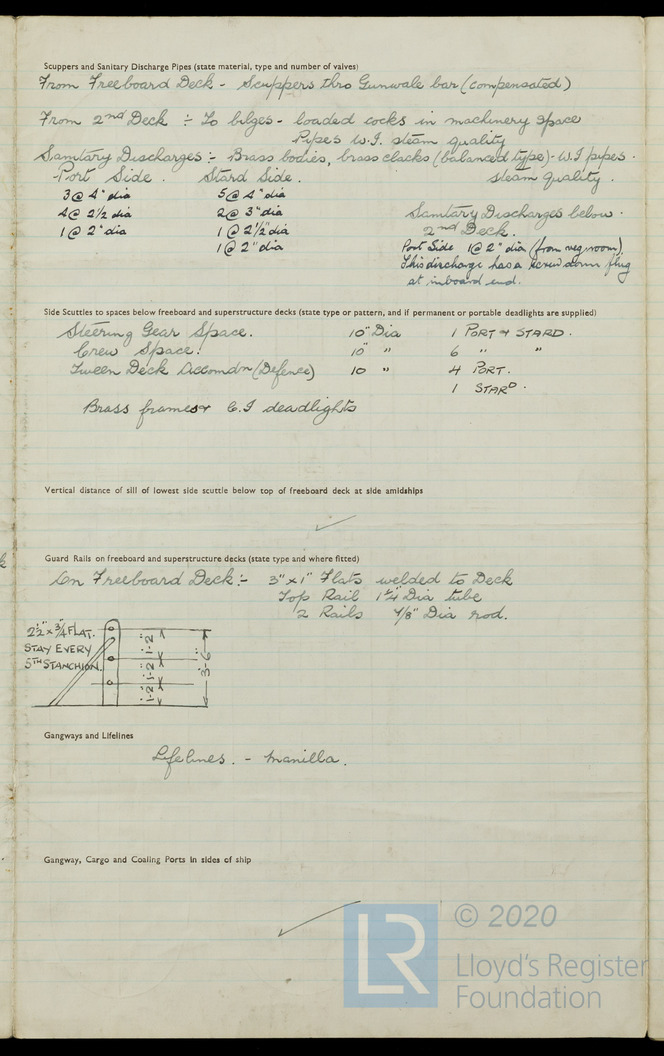 Scuppers and Sanitary Discharge Pipes (state material, type and number of valves)
From Freeboard Deck - Scuppers thro Gunwale bar (compensated)
From 2nd Deck ÷ To bilges - loaded cocks in machinery space
Pipes W.I. steam quality
Sanitary Discharges :- Brass bodies, brass clacks (balanced type) - W.I pipes.
steam quality.
Port Side. Stard Side.
3 @ 4" dia 5 @ 4" dia
4 @ 2 1/2 dia 2 @ 3" dia
1 @ 2" dia 1 @ 2 1/2" dia
1 @ 2" dia
Sanitary Discharges below.
2nd Deck.
Port Side 1 @ 2" dia (from veg room)
This discharge has a screw down
at inboard end.
Side Scuttles to spaces below freeboard and superstructure decks (state type or pattern, and if permanent or portable deadlights are supplied)
Steering Gear Space. 10" Dia 1 PORT & STARD.
Crew Space. 10" " 6 " "
Tween Deck Accomdn (Defence) 10 " 4 PORT.
1 STARD.
Brass frames & C.I deadlights
Vertical distance of sill of lowest side scuttle below top of freeboard deck at side amidships
Guard Rails on freeboard and superstructure decks (state type and where fitted)
On Freeboard Deck :- 3" x 1" Flats welded to Deck
Top Rail 1 1/4" Dia tube
2 Rails 7/8" Dia rod.
2 1/2" x 3/4 FLAT.
STAY EVERY
5TH STANCHION.
1'-2"
1'-2"
1'-2"
3'-6"
Gangways and Lifelines
Lifelines. - Manilla.
Gangway, Cargo and Coaling Ports in sides of ship
LR
© 2020
Lloyd's Register
Foundation